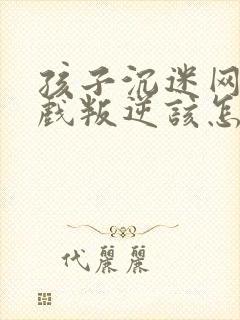 孩子沉迷网
戏叛逆该怎
代麗麗